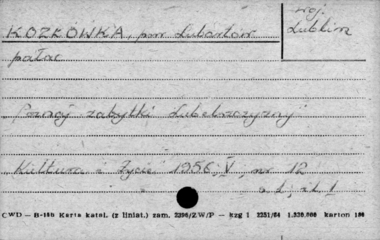 KOZŁÓWKA, pow. Lubartów
woj. Lublin
pałac
"Poznaj zabytki Lubelszczyzny"
"Kultura i Życie" 1956, V, nr 12
s. 1, il. 1
CWD — B-15b Karta katal. (z liniat.) zam. 2206/ZW/P — kzg 1 2251/64 1.320.000 karton 180